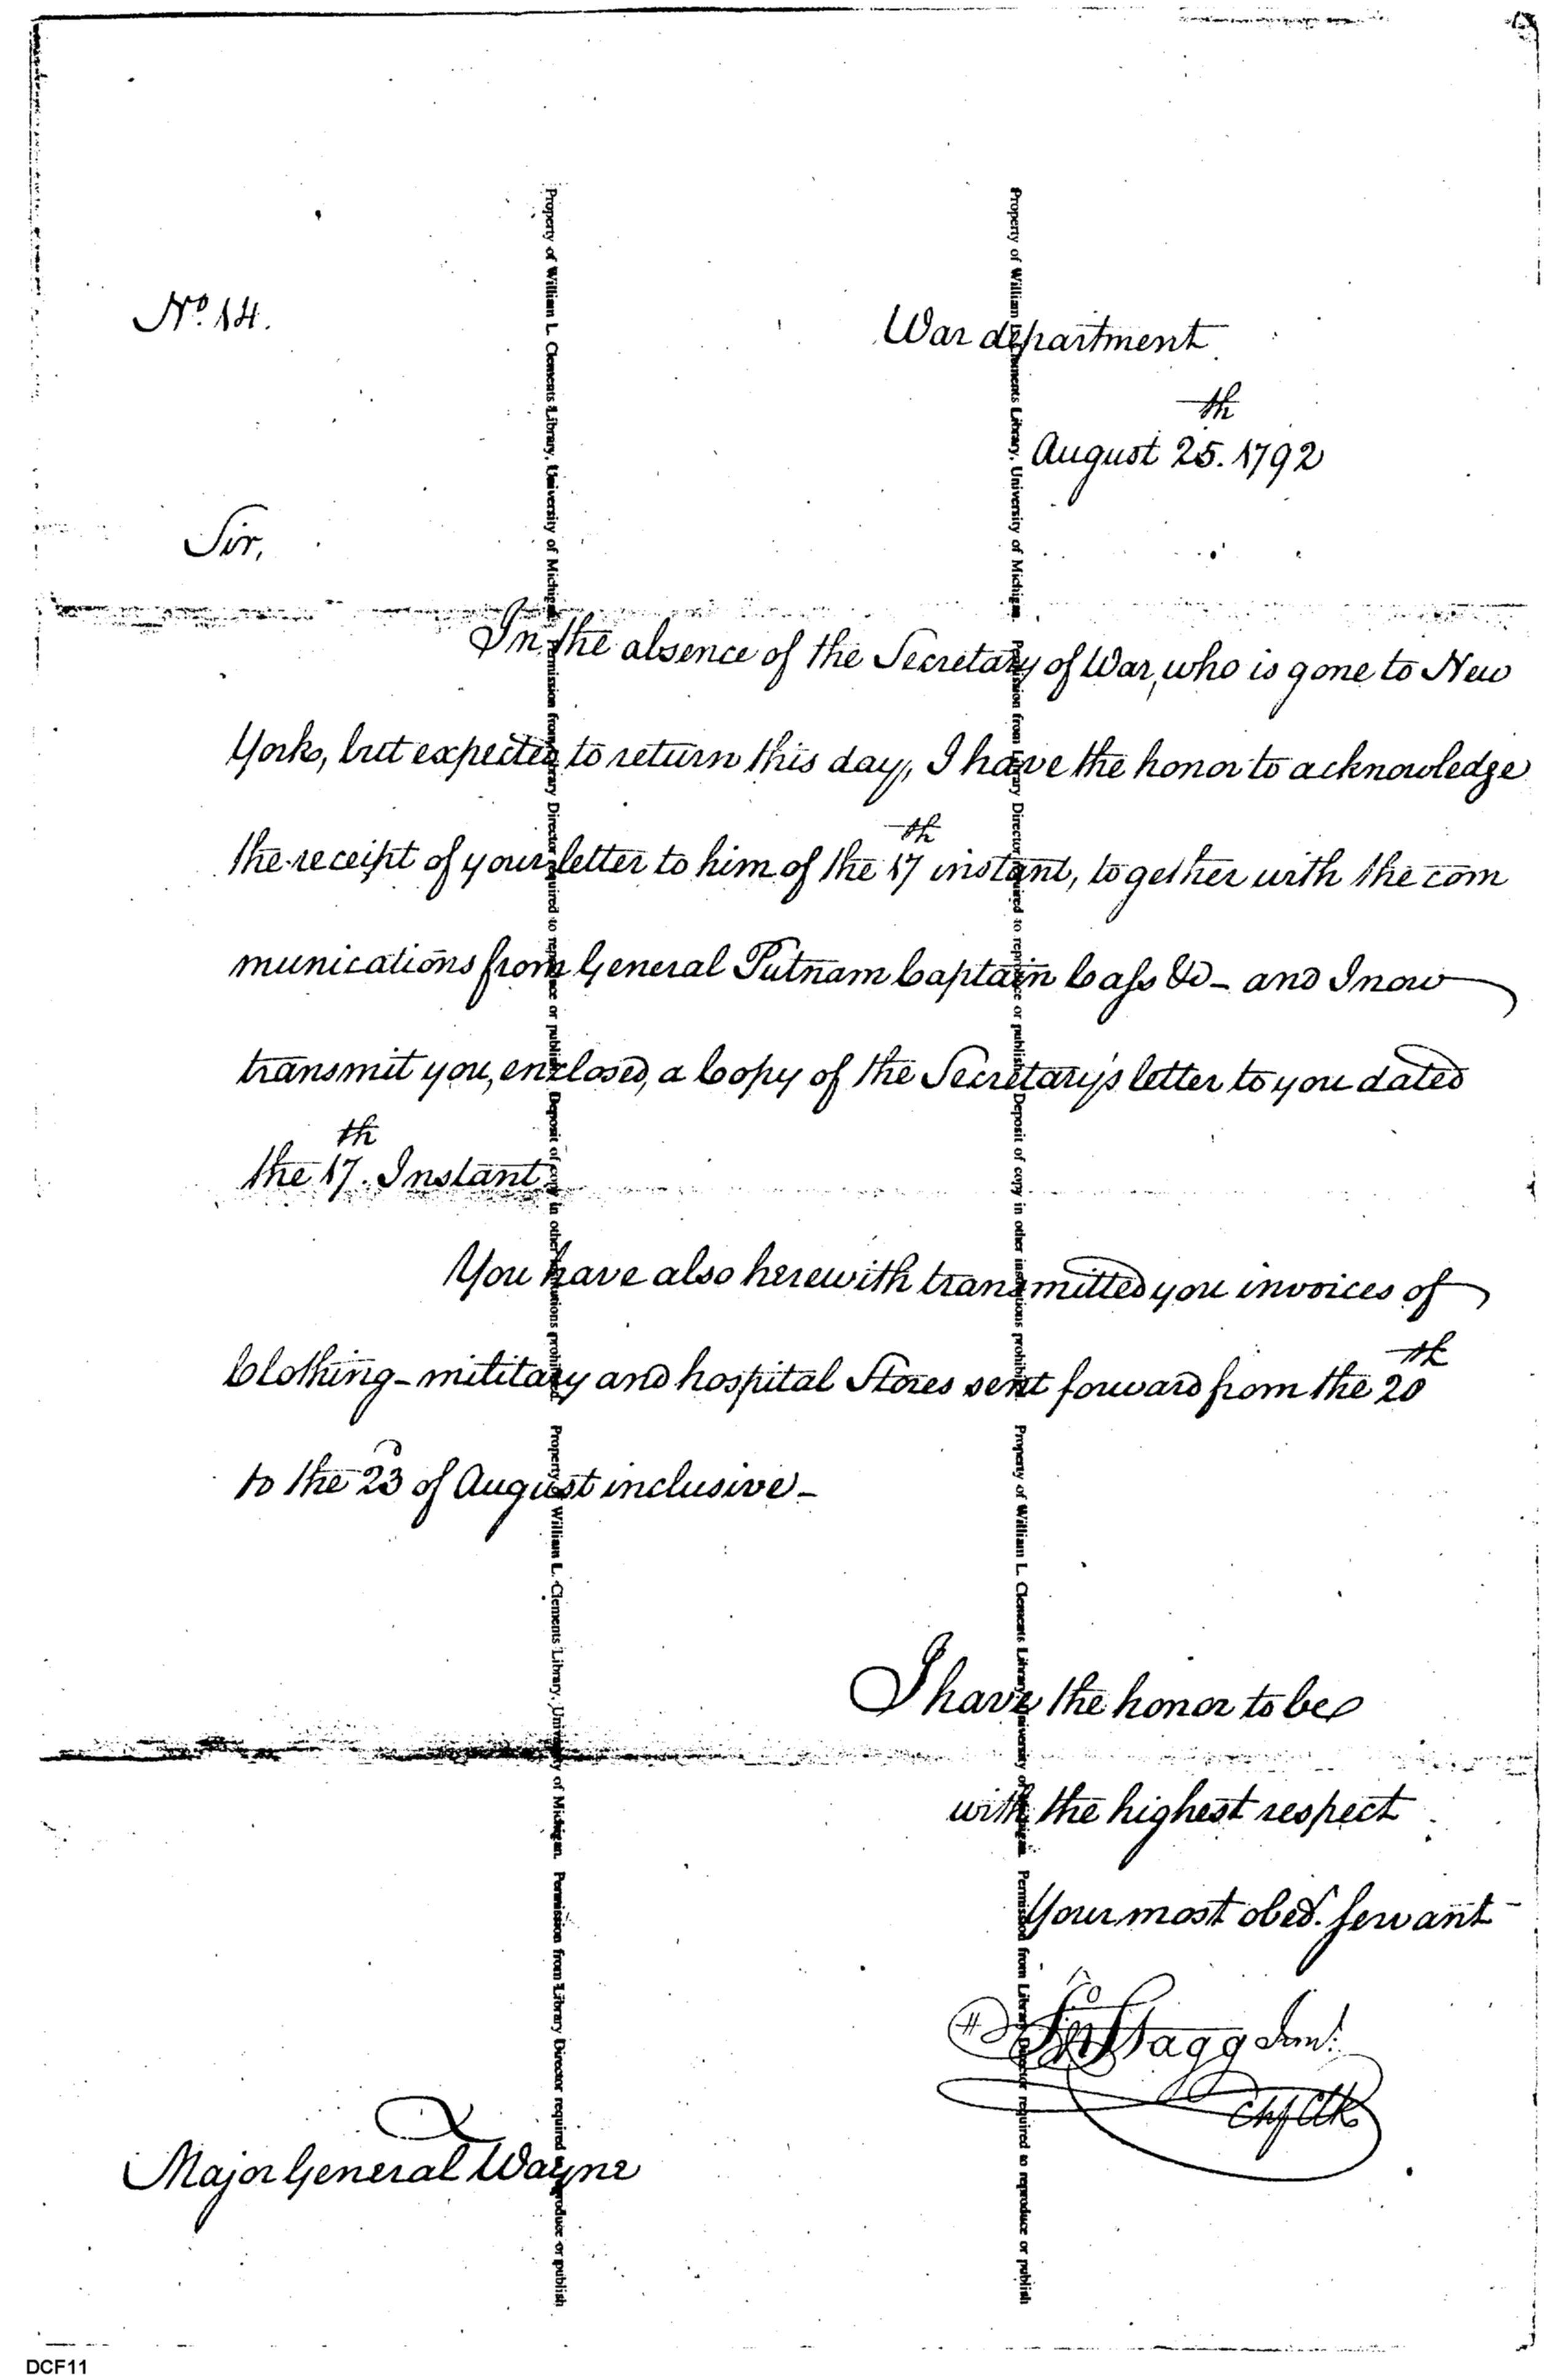 No. 14.
War department
August 25.th 1792
Sir,
In the absence of the Secretary of War, who is gone to New
York, but expected to return this day, I have the honor to acknowledge
the receipt of your letter to him of the 17th instant, together with the com
munications from General Putnam Captain Cass &c - and I now
transmit you, enclosed, a Copy of the Secretary's letter to you dated
the 17.th Instant
You have also herewith transmitted you invoices of
Clothing - military and hospital Stores sent forward from the 20th
to the 23d of August inclusive -
I have the honor to be
with the highest respect
Your most obed. servant
Jno Stagg Junr.
Chf Clk
Major General Wayne
Property of William L. Clements Library, University of Michigan. Permission from Library Director required to reproduce or publish. Deposit of copy in other institutions prohibited. Property of William L. Clements Library, University of Michigan. Permission from Library Director required to reproduce or publish
Property of William L. Clements Library, University of Michigan. Permission from Library Director required to reproduce or publish. Deposit of copy in other institutions prohibited. Property of William L. Clements Library, University of Michigan. Permission from Library Director required to reproduce or publish
DCF11